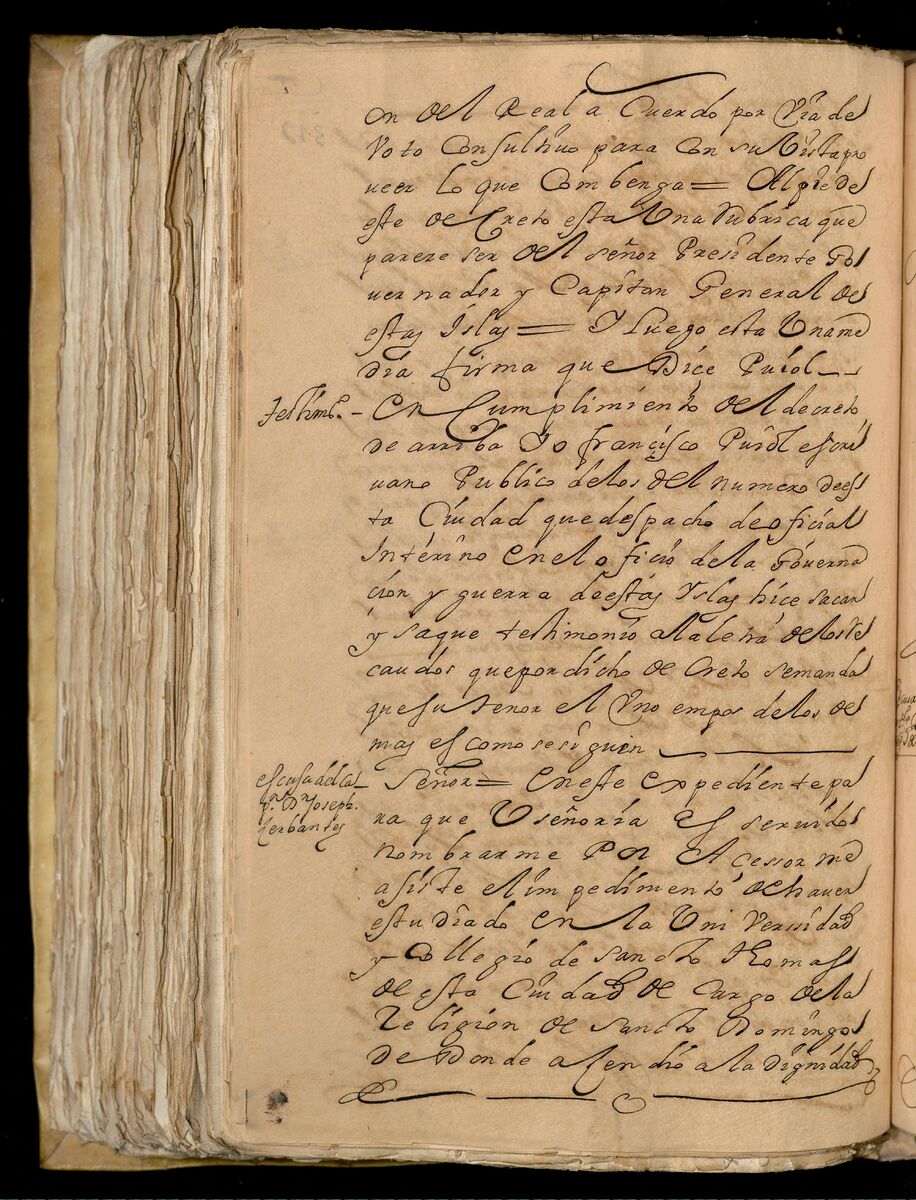 en del Real a Cuerdo por Via de
Voto Consultiuo para Con su Vista pro
ueer lo que Combenga = Al pie de
este de Creto esta Una Rubrica que
parece ser del señor Presidente Go
uernador y Capitan General de
estas Islas = Y Luego esta Una me
dia firma que Dice Puiol
testimo. - En Cumplimiento del decreto
de arriba Yo francisco Puiol escri
uano Publico delos del numero de es
ta Ciudad que despacho de oficial
Interino en el oficio de la Gouerna
cion y guerra de estas Yslas hice sacar
y saque testimonio a la letra de los Re
caudos que por dicho de Creto se manda
que su tenor el Uno empos de los de
mas es como se siguen
escusa del ca
pn. Dn. Joseph
Cerbantes
Señor = En este Expediente pa
ra que Vseñoria es seruido
nombrarme Por Acessor me
asiste el impedimento de hauer
estudiado en la Uni Verssidad
y Collegio de Sancto Thomas
de esta Ciudad de Cargo de la
Religion de Sancto Domingo
de Donde asendio a la Dignidad